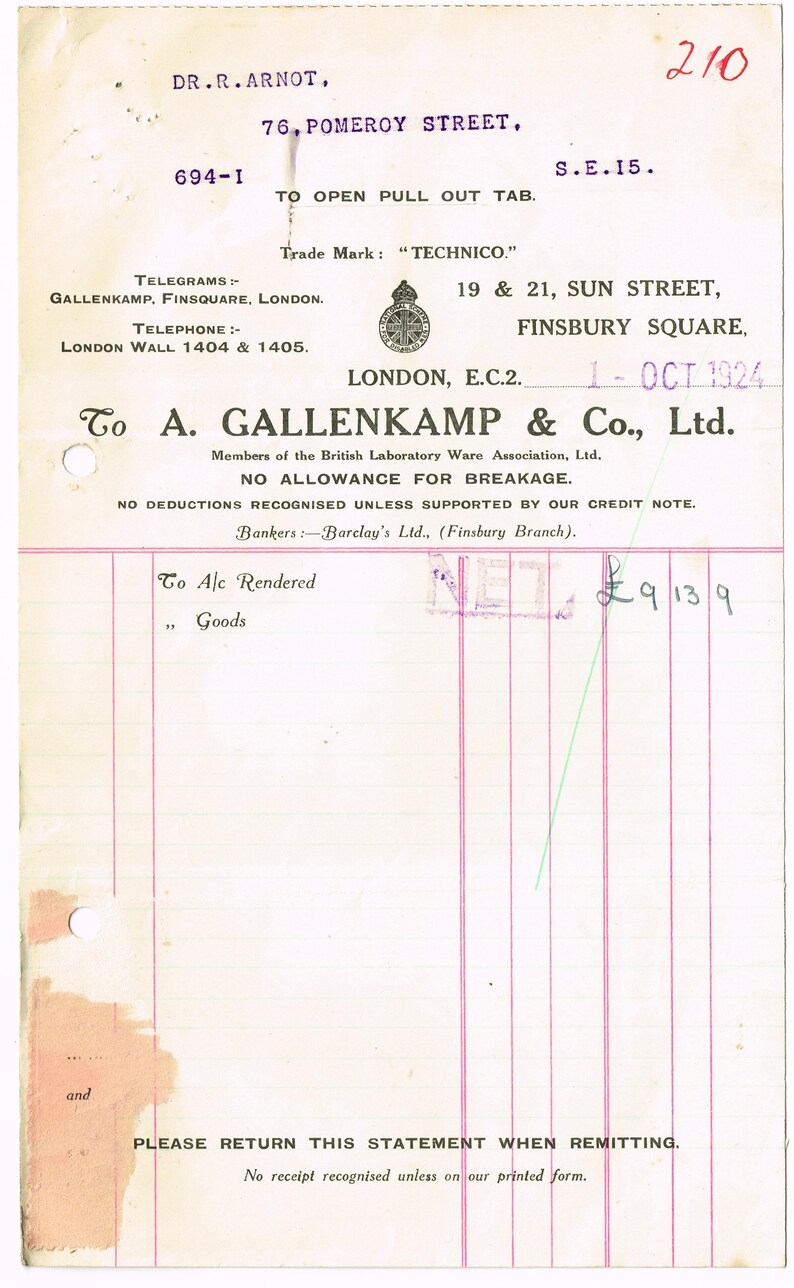 210
DR.R.ARNOT,
76,POMEROY STREET,
694-I S.E.I5.
TO OPEN PULL OUT TAB.
Trade Mark: "TECHNICO."
TELEGRAMS:-
GALLENKAMP, FINSQUARE, LONDON.
TELEPHONE:-
LONDON WALL 1404 & 1405.
NATIONAL SCHEME
FOR DISABLED MEN
19 & 21, SUN STREET,
FINSBURY SQUARE,
LONDON, E.C.2. 1 - OCT 1924
To A. GALLENKAMP & Co., Ltd.
Members of the British Laboratory Ware Association, Ltd.
NO ALLOWANCE FOR BREAKAGE.
NO DEDUCTIONS RECOGNISED UNLESS SUPPORTED BY OUR CREDIT NOTE.
Bankers:—Barclay's Ltd., (Finsbury Branch).
To A/c Rendered NET. £9 13 9
„ Goods
and
PLEASE RETURN THIS STATEMENT WHEN REMITTING.
No receipt recognised unless on our printed form.